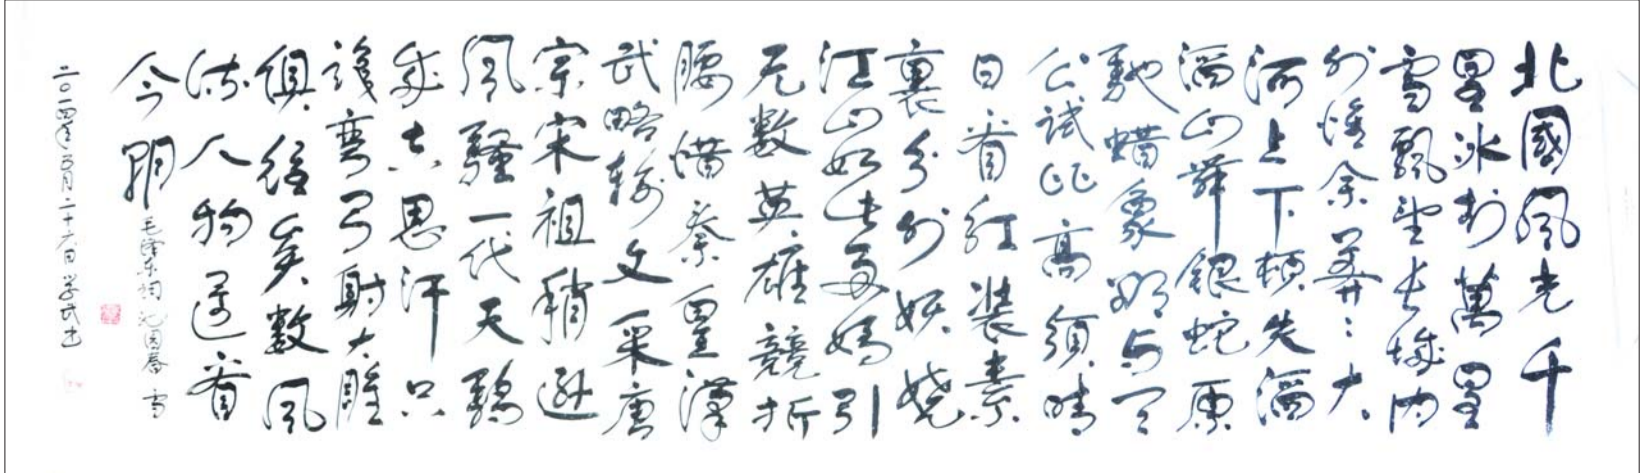 北國風光千
里冰封萬里
雪飄望长城内
外惟余莽〻大
河上下頓失滔
滔山舞銀蛇原
馳蜡象欲与天
公試比高須晴
日看红装素
裹分外妖娆
江山如此多嬌引
无数英雄競折
腰惜秦皇漢
武略输文采唐
宗宋祖稍逊
風騷一代天驕
成吉思汗只
識弯弓射大雕
俱往矣数風
流人物还看
今朝
毛泽东词沁园春雪
二〇一四年五月二十六日学武书